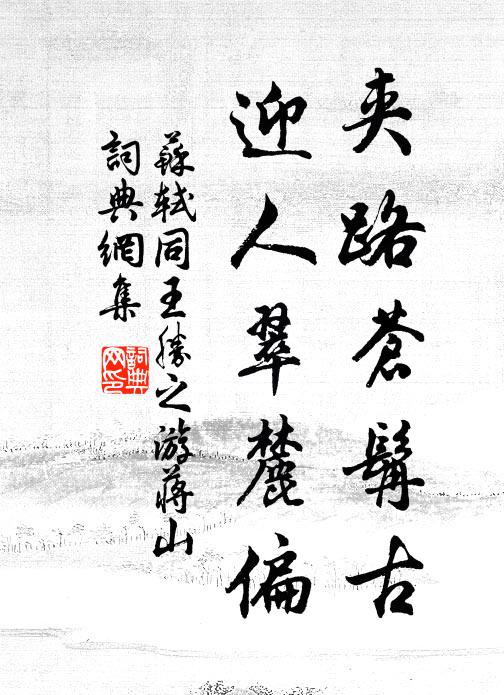 夹路蒼髯古
迎人翠麓偏
蘇軾同王勝之游蔣山
詞典網集
詞典网印